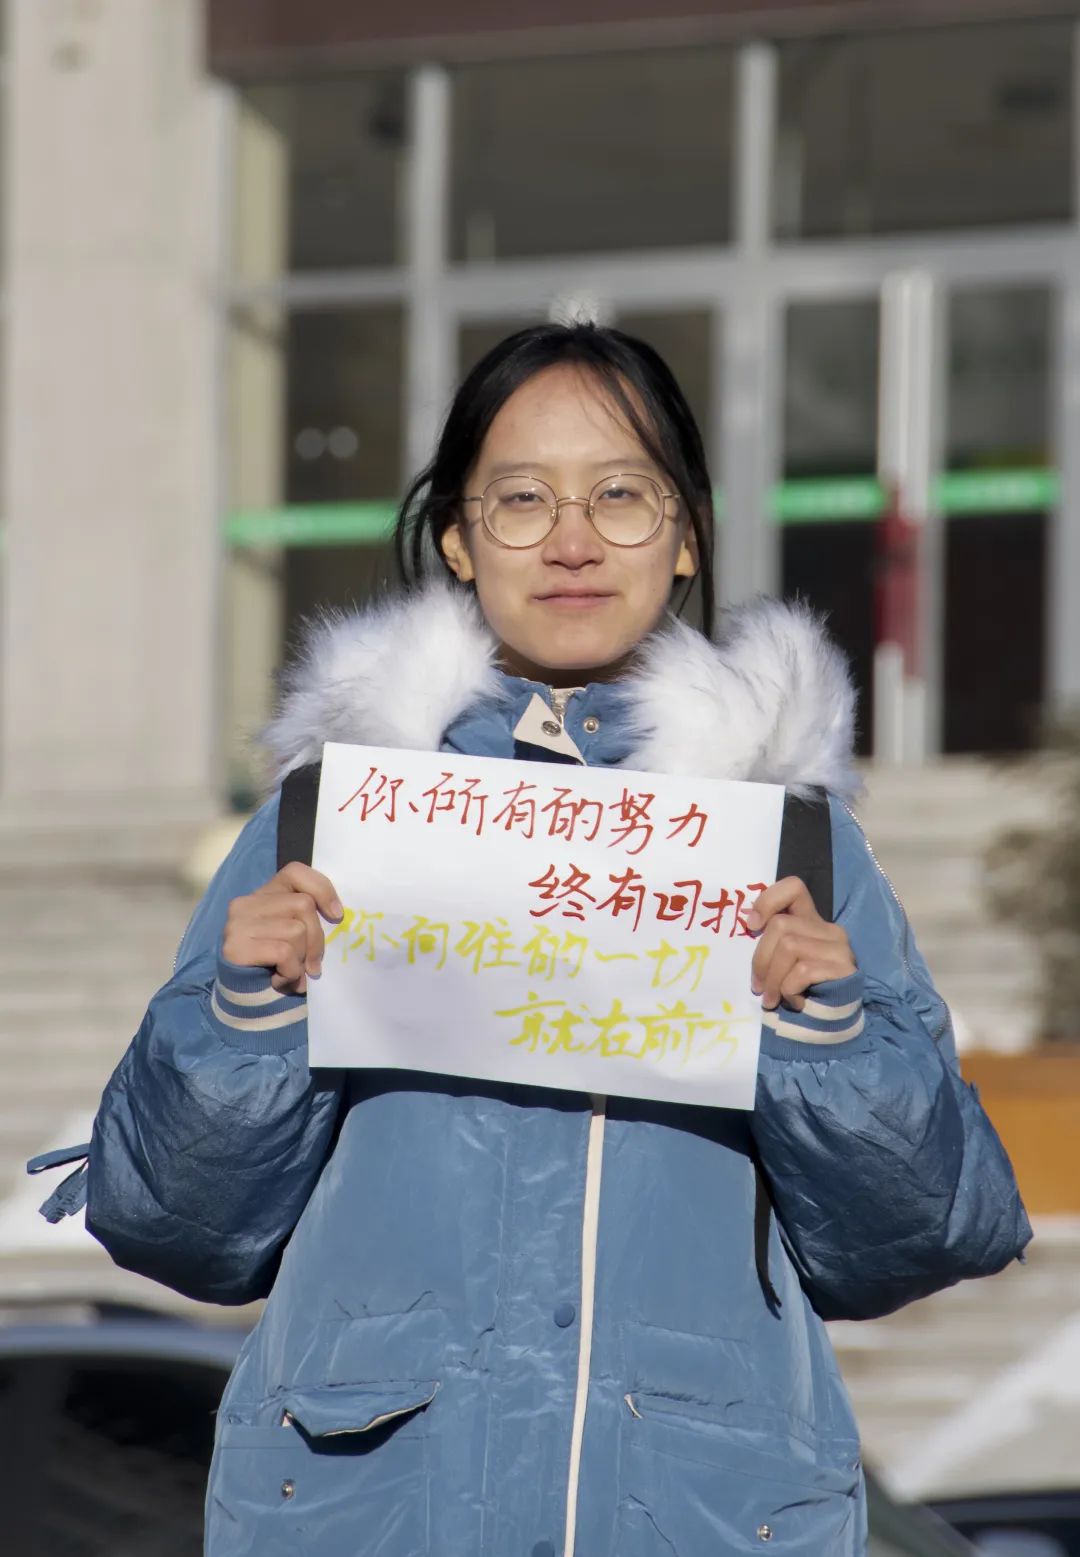 你所有的努力
终有回报
你向往的一切
就在前方